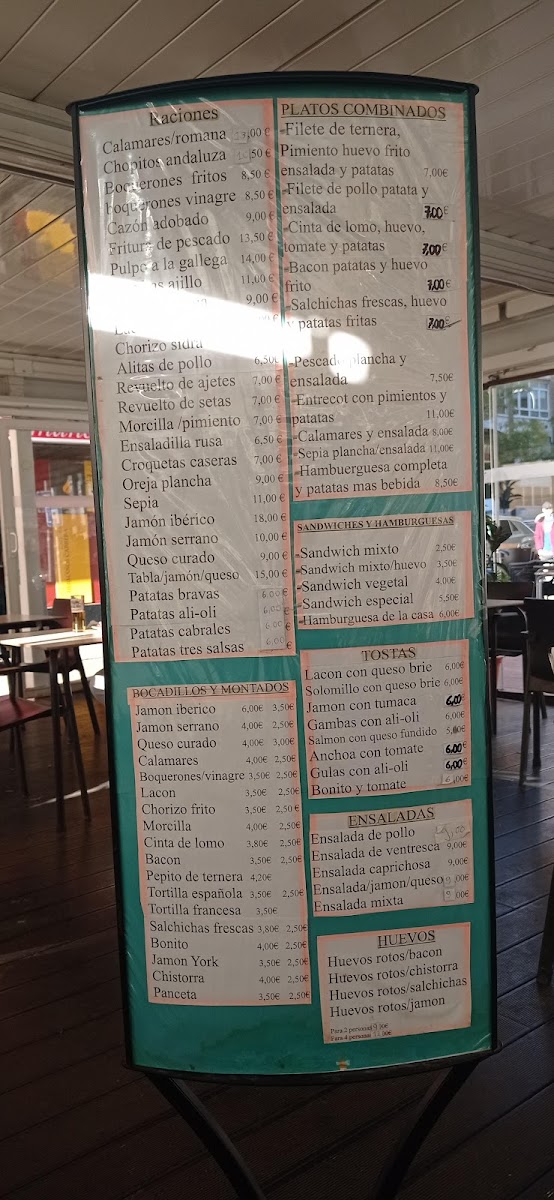 Raciones
Calamares/romana 13,00 €
Chopitos andaluza 50 €
Boquerones fritos 8,50 €
boquerones vinagre 8,50 €
Cazón adobado 9,00 €
Fritura de pescado 13,50 €
Pulpo a la gallega 14,00 €
ajillo 11,00 €
9,00 €
Chorizo sidra
Alitas de pollo 6,50€
Revuelto de ajetes 7,00 €
Revuelto de setas 7,00 €
Morcilla /pimiento 7,00 €
Ensaladilla rusa 6,50 €
Croquetas caseras 7,00 €
Oreja plancha 9,00 €
Sepia 11,00 €
Jamón ibérico 18,00 €
Jamón serrano 10,00 €
Queso curado 9,00 €
Tabla/jamón/queso 15,00 €
Patatas bravas 6,00 €
Patatas ali-oli 6,00 €
Patatas cabrales 6,00 €
Patatas tres salsas 6,00 €
BOCADILLOS Y MONTADOS
Jamon iberico 6,00€ 3,50€
Jamon serrano 4,00€ 2,50€
Queso curado 4,00€ 3,00€
Calamares 4,00€ 2,50€
Boquerones/vinagre 3,50€ 2,50€
Lacon 3,50€ 2,50€
Chorizo frito 3,50€ 2,50€
Morcilla 4,00€ 2,50€
Cinta de lomo 3,80€ 2,50€
Bacon 3,50€ 2,50€
Pepito de ternera 4,20€
Tortilla española 3,50€ 2,50€
Tortilla francesa 3,50€
Salchichas frescas 3,80€ 2,50€
Bonito 4,00€ 2,50€
Jamon York 3,50€ 2,50€
Chistorra 4,00€ 2,50€
Panceta 3,50€ 2,50€
PLATOS COMBINADOS
-Filete de ternera,
Pimiento huevo frito
ensalada y patatas 7,00€
-Filete de pollo patata y
ensalada 7,00€
-Cinta de lomo, huevo,
tomate y patatas 7,00€
-Bacon patatas y huevo
frito 7,00€
-Salchichas frescas, huevo
y patatas fritas 7,00€
-Pescado plancha y
ensalada 7,50€
-Entrecot con pimientos y
patatas 11,00€
-Calamares y ensalada 8,00€
-Sepia plancha/ensalada 11,00€
-Hambuerguesa completa
y patatas mas bebida 8,50€
SANDWICHES Y HAMBURGUESAS
-Sandwich mixto 2,50€
-Sandwich mixto/huevo 3,50€
-Sandwich vegetal 4,00€
-Sandwich especial 5,50€
-Hamburguesa de la casa 6,00€
TOSTAS
Lacon con queso brie 6,00€
Solomillo con queso brie 6,00€
Jamon con tumaca 6,00€
Gambas con ali-oli 6,00€
Salmon con queso fundido 5,00€
Anchoa con tomate 6,00€
Gulas con ali-oli 6,00€
Bonito y tomate 6,00€
ENSALADAS
Ensalada de pollo
Ensalada de ventresca 9,00€
Ensalada caprichosa 9,00€
Ensalada/jamon/queso 9,00€
Ensalada mixta 00€
HUEVOS
Huevos rotos/bacon
Huevos rotos/chistorra
Huevos rotos/salchichas
Huevos rotos/jamon
Para 2 personas 9,00€
Para 4 personas 11,00€